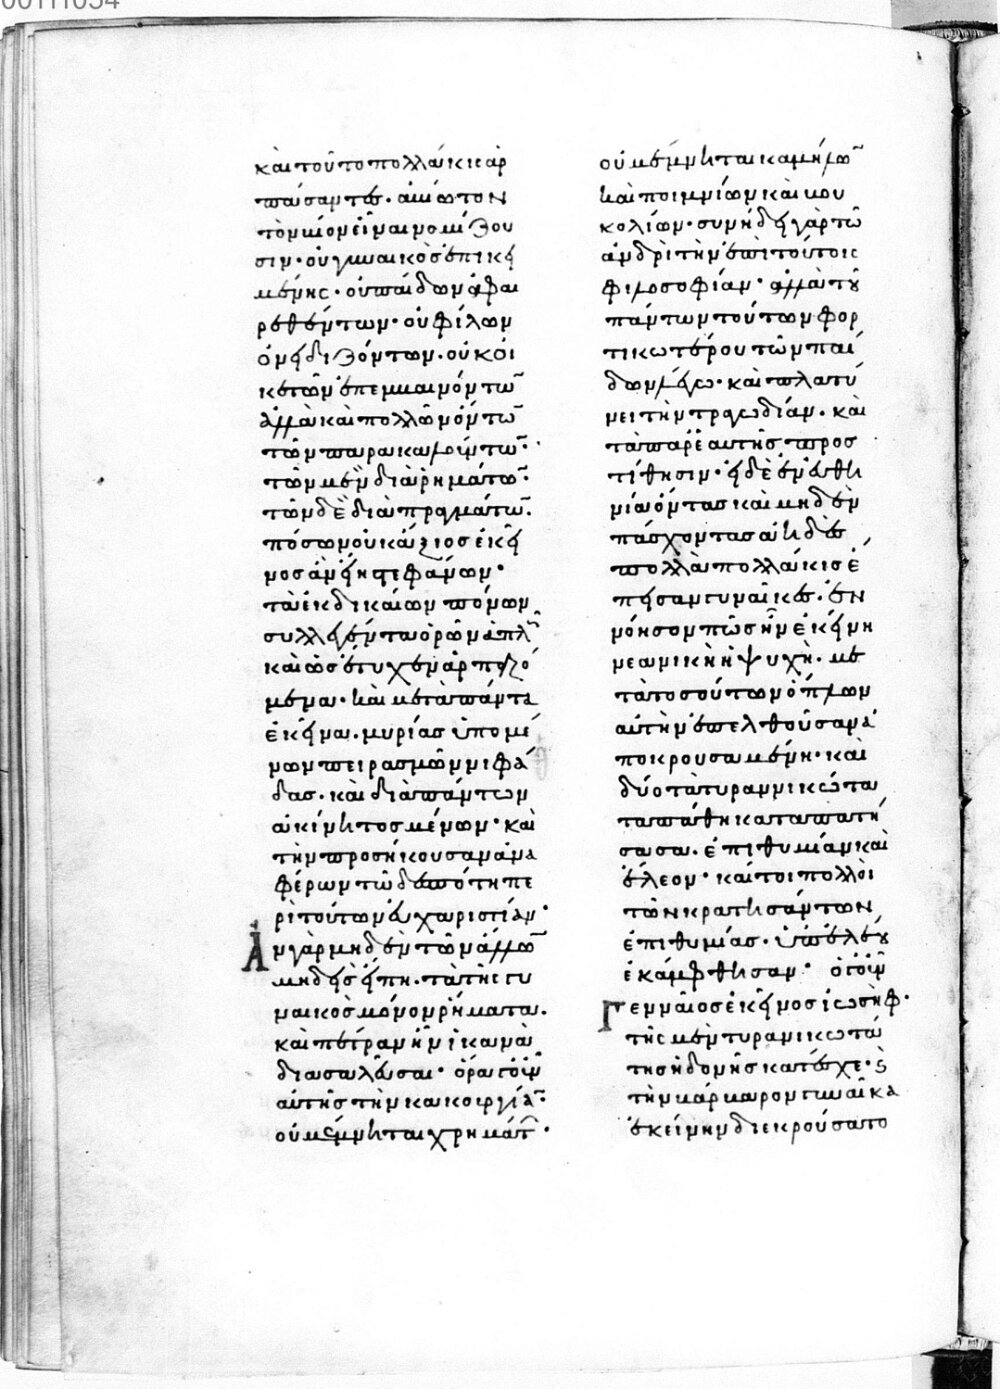 καὶ τοῦτο πολλάκις ἁρ
πάσαντες. ἀνιώτον
τὸν νιὸν εἶναι νομίζου
σιν· οὐ γυναικὸς ἐπικει
μένης· οὐ παίδων ἀφαι
ρεθέντων· οὐ φίλων
ὀνειδιζόντων· οὐκ οἰ
κετῶν ἐπεμβαινόντω
ἀλλὰ καὶ πολλῶν ὄντω
τῶν παρακαλούντω·
τῶν μὲν διὰ ῥημάτω·
τῶν δὲ διὰ πραγμάτω·
πόσων οὐκ ἄξιος ἐκεῖ
νος ἂν εἴη στεφάνων·
τὰ ἐκ δικαίων πόνων
συλλεγέντα ὁρῶν ἁπλ
καὶ ὡς ἔτυχεν ἁρπαζό
μενα· καὶ μετὰ πάντα
ἐκεῖνα. μυρίας ὑπομέ
νων πειρασμῶν νιφά
δας. καὶ διὰ πάντων
ἀκίνητος μένων· καὶ
τὴν προσήκουσαν ἀνα
φέρων τῷ δεσπότῃ πε
ρὶ τούτων εὐχαριστίαν·
Ἂν γὰρ μηδὲν τῶν ἄλλω
μηδεὶς εἴπῃ. τὰ τῆς γυ
ναικὸς μόνον ῥήματα.
καὶ πέτραν ἦν ἱκανὰ
διασαλεῦσαι· ὅρα γοῦν
αὐτῆς τὴν κακουργία·
οὐ μέμνηται χρημάτ·
οὐ μέμνηται καμήλω
καὶ ποιμνίων καὶ βου
κολίων· συνῄδει γὰρ τῶ
ἀνδρὶ τὴν ἐπὶ τούτοις
φιλοσοφίαν· ἀλλὰ τοῦ
πάντων τούτων φορ
τικωτέρου τῶν παί
δων λέγω· καὶ πλατύ
νει τὴν τραγωδίαν. καὶ
τὰ παρ᾽ ἑαυτῆς προσ
τίθησιν· εἰ δὲ ἐν εὐθη
νία ὄντας καὶ μηδὲν
πάσχοντας ἀηδὲς
πολλὰ πολλάκις ἔ
πεισαν γυναῖκες. ἐν
νόησον πῶς ἦν ἐκείνη
νεανικὴ ἡ ψυχὴ. με
τὰ τοσούτων ὅπλων
αὐτὴν ἐπελθοῦσαν ἀ
ποκρουσαμένη· καὶ
δύο τὰ τυραννικώτα
τα πάθη καταπατή
σασα. ἐπιθυμίαν καὶ
ἔλεον· καίτοι πολλοὶ
τῶν κρατησάντων
ἐπιθυμίας. ὑπ᾽ ἐλέου
ἐκάμφθησαν· ὁ γοῦν
Γενναῖος ἐκεῖνος ἰωσὴφ·
τῆς μὲν τυραννικωτά
της ἡδονῆς κατέσχε· καὶ
τὴν βάρβαρον γυναῖκα
ἐκείνην διεκρούσατο